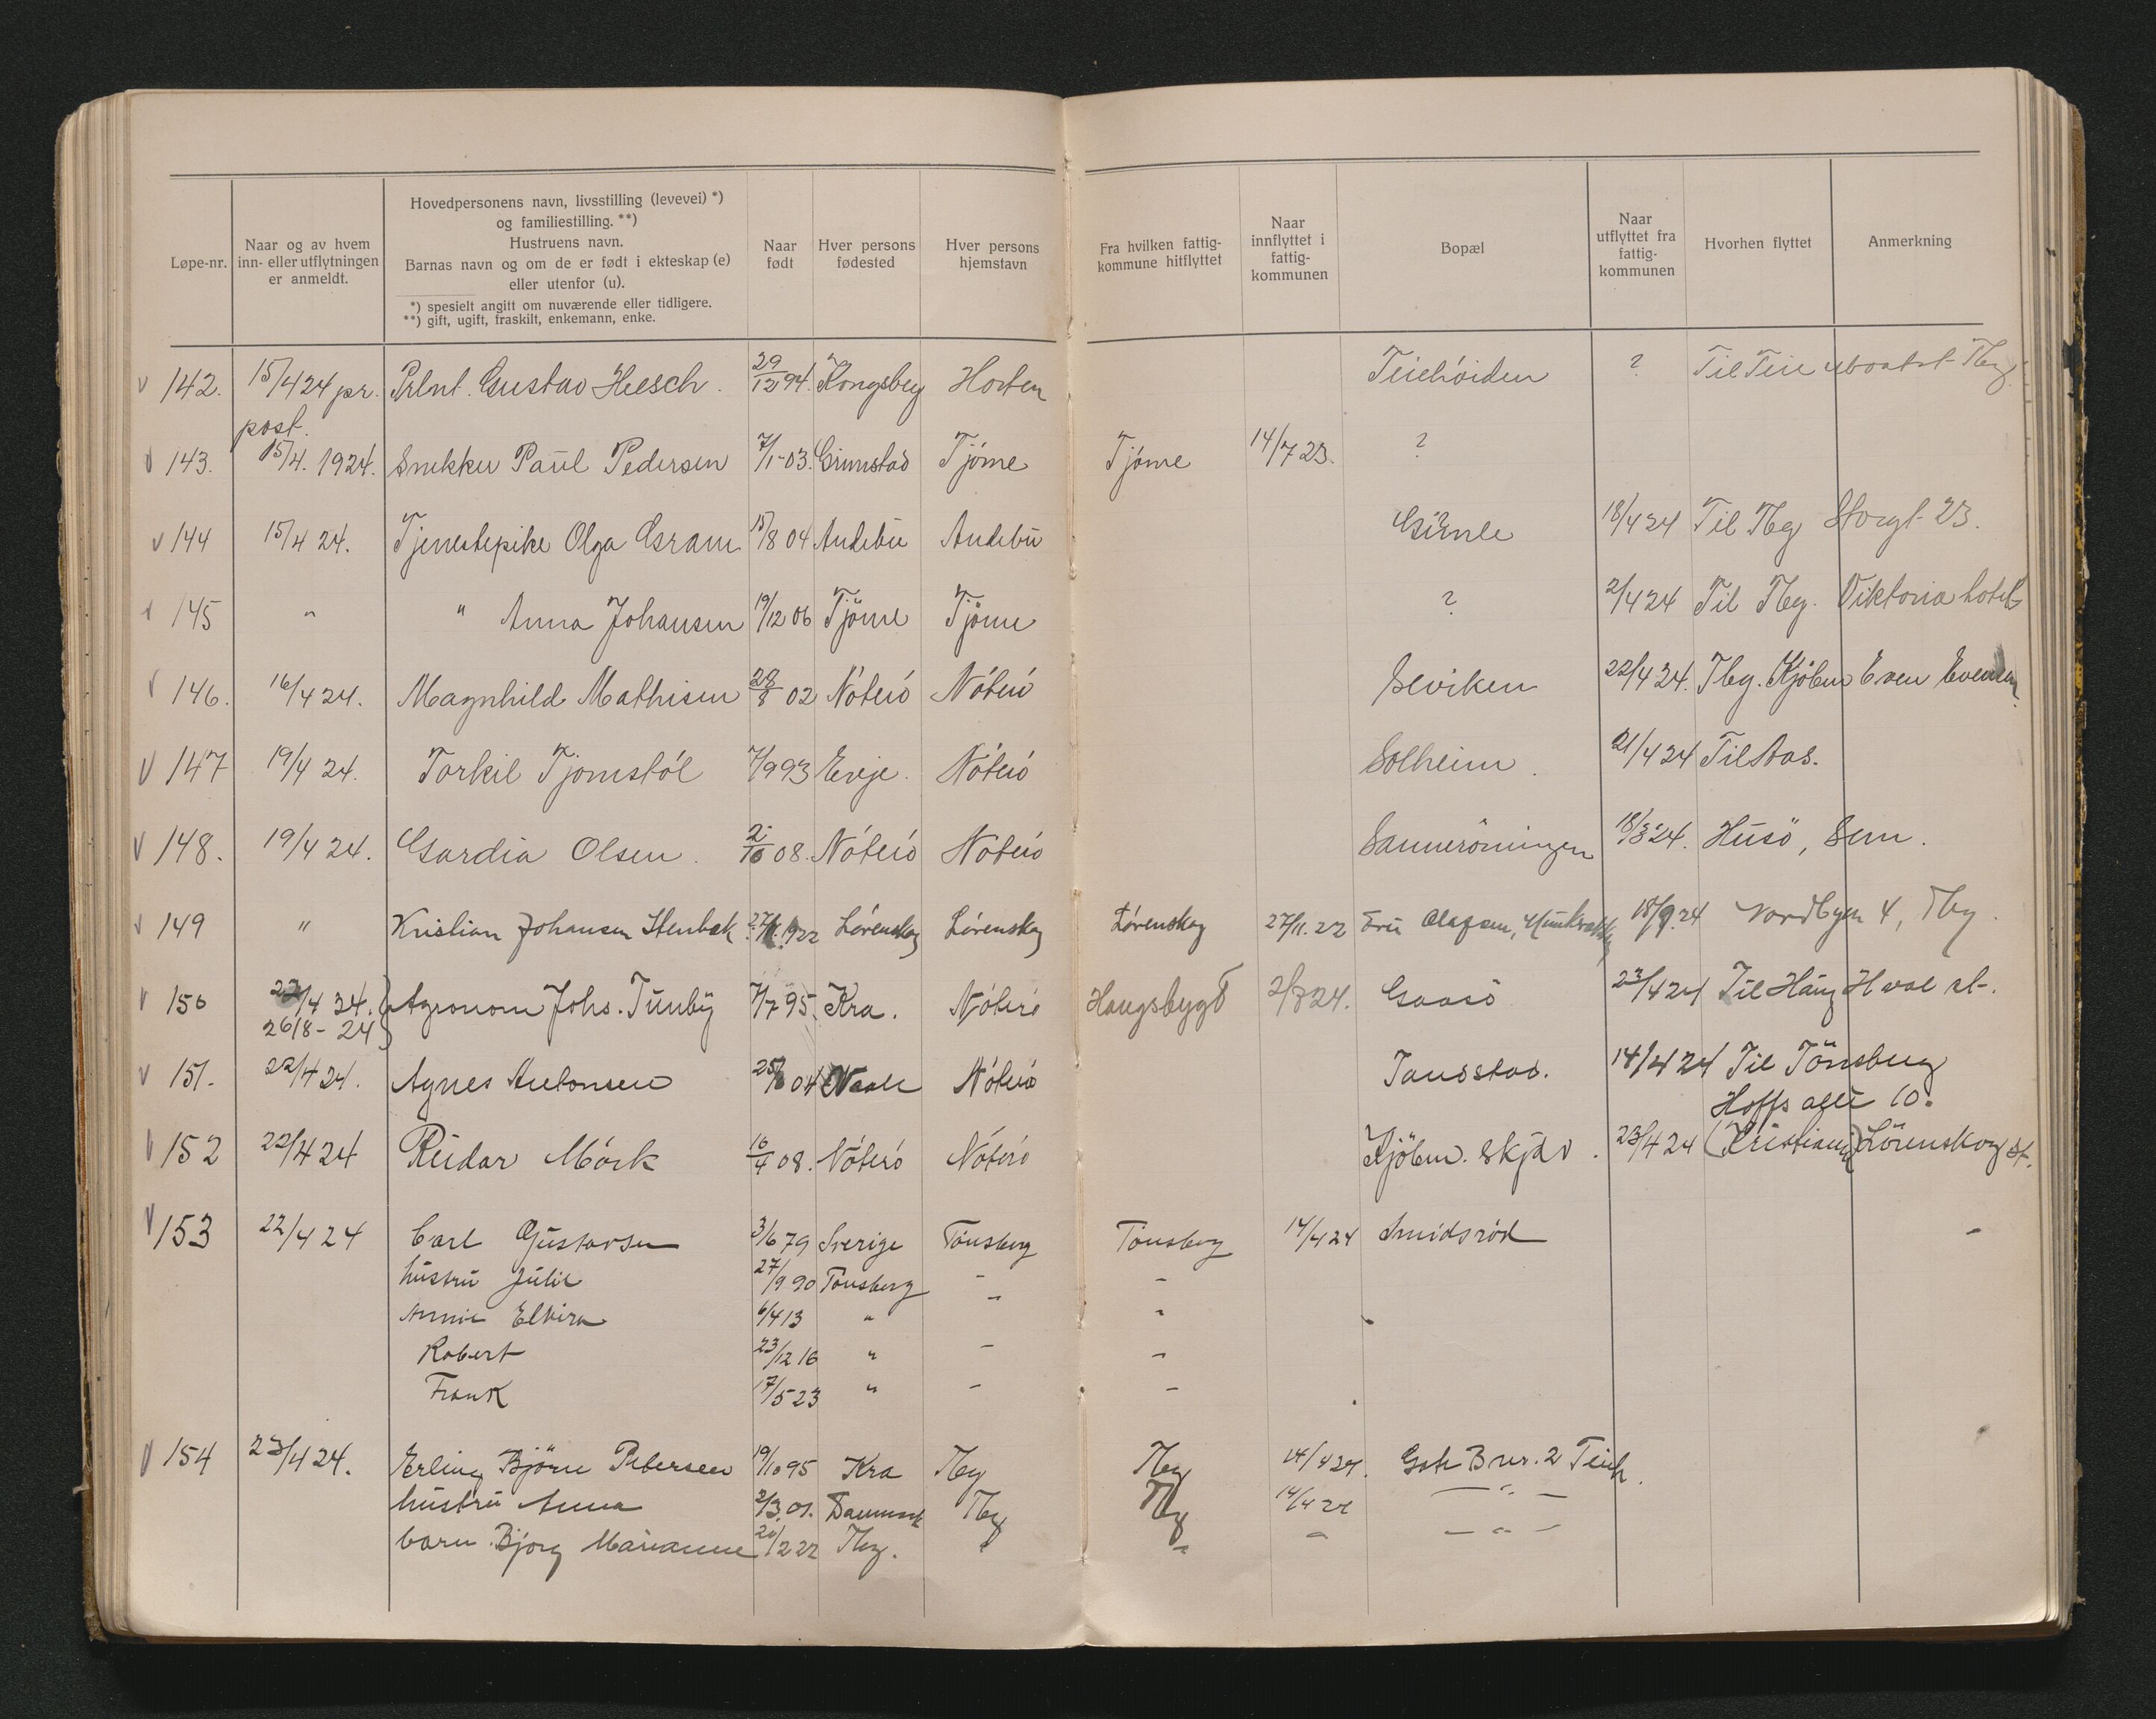 Løpe-nr.
Naar og av hvem
inn- eller utflytningen
er anmeldt.
Hovedpersonens navn, livsstilling (levevei) *)
og familiestilling. **)
Hustruens navn.
Barnas navn og om de er født i ekteskap (e)
eller utenfor (u).
*) spesielt angitt om nuværende eller tidligere.
**) gift, ugift, fraskilt, enkemann, enke.
Naar
født
Hver persons
fødested
Hver persons
hjemstavn
Fra hvilken fattig-
kommune hitflyttet
Naar
innflyttet i
fattig-
kommunen
Bopæl
Naar
utflyttet fra
fattig-
kommunen
Hvorhen flyttet
Anmerkning
142. 15/4 24 pr. Prlnt. Gustav Heesch. 29/12 94. Kongsberg Horten Teiehöiden ? Til Teie uboatst. Tbg.
post.
143. 15/4. 1924. Snekker Paul Pedersen 7/1-03. Grimstad Tjöme Tjöme 14/7 23. ?
144 15/4 24. Tjenestepike Olga Gram 15/8 04 Andebu Andebu Gimle 18/4 24 Til Tbg Storgt. 23.
145 " " Anna Johansen 19/12 06 Tjöme Tjöme ? 2/4 24 Til Tbg. Viktoria hotel
146. 16/4 24. Magnhild Mathisen 28/8 02 Nöterö Nöterö Seviken 22/4 24. Tbg. Kjöbm Even Evensen
147 19/4 24. Torkil Tjomstöl 7/9 93 Evje. Nöterö Solheim. 21/4 24 Til Aas.
148. 19/4 24. Gardia Olsen. 2/10 08. Nöterö Nöterö Sanneröningen 18/3 24. Husö, Sem.
149 " Kristian Johansen Stenbæk 27/11. 1922 Lörenskog Lörenskog Lörenskog 27/11. 22 Fru Olafsen, Munkerekke 18/9. 24 Nordbyen 4, Tbg.
150 22/4 24. Agronom Johs. Tunby 7/7 95. Kra. Nöterö Haugsbygd 2/8 24. Gaasö 23/4 24 Til Haug Hval st.
26/8 - 24
151. 22/4 24. Agnes Antonsen 25/6 04 Vaale Nöterö Tandstad. 14/4 24 Til Tönsberg
Hoffs alle 10.
152 22/4 24 Reidar Mörk 16/4 08. Nöterö Nöterö Kjöbm. Skjav. 23/4 24 (Kristiania) Lörenskog st.
153 22/4 24 Carl Gustavsen 3/6 79 Sverige Tönsberg Tönsberg 14/4 24 Smidsröd -
hustru Julie 27/9 90 Tönsberg - -
Annie Elvira 6/4 13 " - "
Robert 23/12 16 " - -
Frank 17/5 23 " - -
154 23/4 24. Erling Björn Petersen 19/10 95 Kra Tbg Tbg 14/4 24. Gate B nr. 2 Teie.
hustru Anna 2/3. 01. Danmark Tbg Tbg 14/4 24 - " -
barn Bjorg Marianne 20/2 22 Tbg. " " " - " -